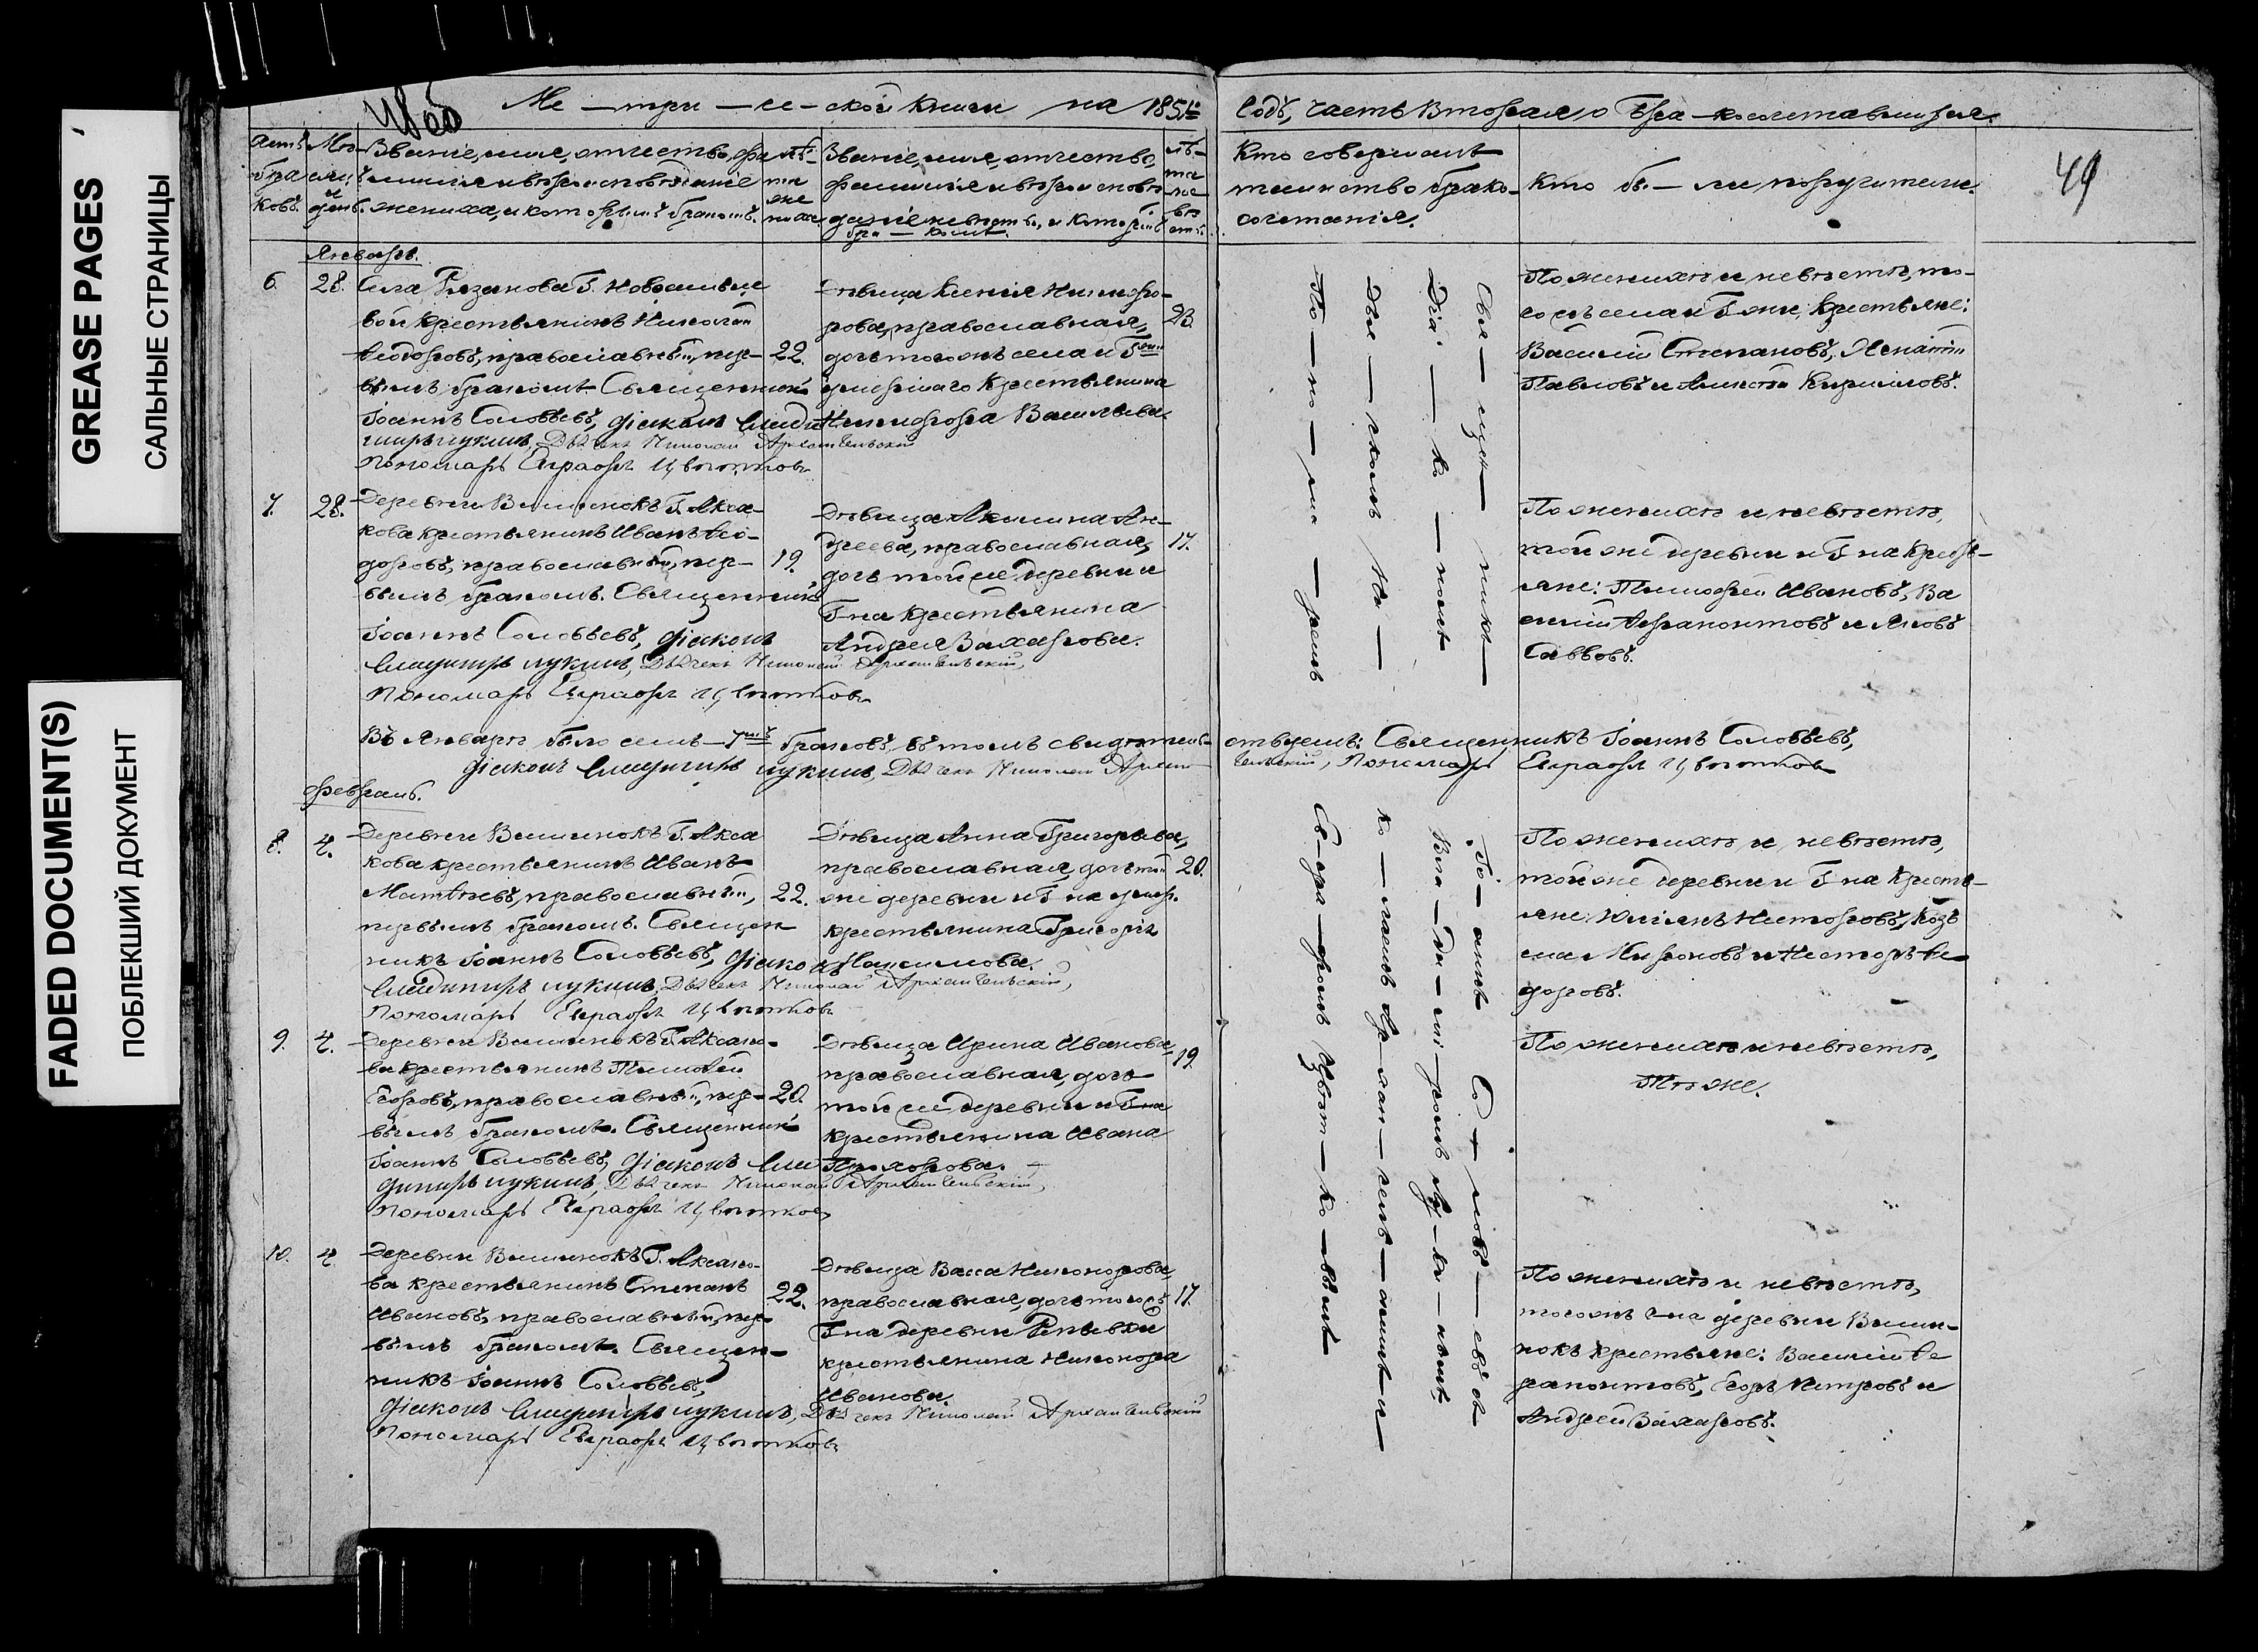 GREASE PAGES
САЛЬНЫЕ СТРАНИЦЫ
FADED DOCUMENT(S)
ПОБЛЕКШИЙ ДОКУМЕНТ
48об
Ме-три-че-ской книги на 1851й
годъ, часть вторая, о бра-косочетавшихся.
49
Счетъ браковъ.
Мѣсяцъ и день.
Званіе, имя, отчество, фамилія и вѣроисповѣданіе
жениха, и которымъ бракомъ.
лѣта жениха
Званіе, имя, отчество,
фамилія и вѣроисповѣданіе невѣсты, и которымъ
бра-комъ.
лѣта невѣсты
Кто совершалъ
таинство брако-
сочетанія.
Кто бы-ли поручители.
Январь.
6.
28.
Села Рязанова Г. Новосильце
вой крестьянинъ Николай
Ѳеодоровъ, православный, пер-
вымъ бракомъ. Священникъ
Іоаннъ Соловьевъ, діаконъ Влади
миръ Лукинъ, Дьячекъ Николай Архангельскій
Пономарь Евграфъ Цвѣтковъ
22.
Дѣвица Ксенія Никифо-
рова, православная,
дочь того же села и Г-жи
умершаго крестьянина
Никифора Васильева.
23.
По женихѣ и невѣстѣ, то-
го же села и Г-жи, крестьяне:
Василій Степановъ, Игнатій
Павловъ и Алексѣй Кирилловъ.
7.
28.
Деревни Вишенокъ Г. Акса-
кова крестьянинъ Иванъ Ѳео-
доровъ, православный, пер-
вымъ бракомъ. Священникъ
Іоаннъ Соловьевъ, діаконъ
Владимиръ Лукинъ, Дьячекъ Николай Архангельскій,
Пономарь Евграфъ Цвѣтковъ
19.
Дѣвица Акилина Ан-
дреева, православная,
дочь той же деревни и
Г-на крестьянина
Андрея Захарова.
17.
По женихѣ и невѣстѣ,
той же деревни и Г-на кресть-
яне: Тимофей Ивановъ, Ва
силій Ферапонтовъ и Яковъ
Савовъ.
Свя-щен-никъ
Діа-ко-номъ
Дья-чкомъ Ни-
По-но-ма-ремъ
Въ Январѣ было семь-7мь браковъ, въ томъ свидѣтель-
ствуемъ: Священникъ Іоаннъ Соловьевъ,
діаконъ Владимиръ Лукинъ, Дьячекъ Николай Архан-
гельскій, Пономарь Евграфъ Цвѣтковъ
Февраль.
8.
4.
Деревни Вишенокъ Г. Акса
кова крестьянинъ Иванъ
Матвѣевъ, православный,
первымъ бракомъ. Священ
никъ Іоаннъ Соловьевъ, діаконъ
Владимиръ Лукинъ, Дьячекъ Николай Архангельскій,
Пономарь Евграфъ Цвѣтковъ
22.
Дѣвица Анна Григорьева,
православная, дочь той
же деревни и Г-на умер.
крестьянина Григорія
Максимова.
20.
По женихѣ и невѣстѣ,
той же деревни и Г-на кресть-
яне: Несторовъ, Козь
ма Мироновъ и Несторъ Ѳе-
доровъ.
9.
4.
Деревни Вишенокъ Г. Аксако-
ва крестьянинъ Тимоѳей
Егоровъ, православный, пер-
вымъ бракомъ. Священникъ
Іоаннъ Соловьевъ, діаконъ Вла
димиръ Лукинъ, Дьячекъ Николай Архангельскій,
Пономарь Евграфъ Цвѣтковъ
20.
Дѣвица Ирина Иванова,
православная, дочь
той же деревни и Г-на
крестьянина Ивана
Прохорова.
19.
По женихѣ и невѣстѣ,
Тѣ же.
10.
4.
Деревни Вишенокъ Г. Аксако-
ва крестьянинъ Степанъ
Ивановъ, православный, пер-
вымъ бракомъ. Священ-
никъ Іоаннъ Соловьевъ,
діаконъ Владимиръ Лукинъ, Дьячекъ Николай Архангельскій
Пономарь Евграфъ Цвѣтковъ
22.
Дѣвица Васса Никонорова,
православная, дочь того же
Г-на деревни Репьевки
крестьянина Никонора
Иванова.
17.
По женихѣ и невѣстѣ,
того же г-на деревни Вишен-
нокъ крестьяне: Василій Ѳе
рапонтовъ, Егоръ Петровъ и
Андрей Захаровъ.
Іо-аннъ Со-ловь-евъ съ
Вла-ди-мі-ромъ Лу-ки-нымъ
ко-лаемъ Ар-хан-гель-скимъ и
Ев-гра-фомъ Цвѣт-ко-вымъ